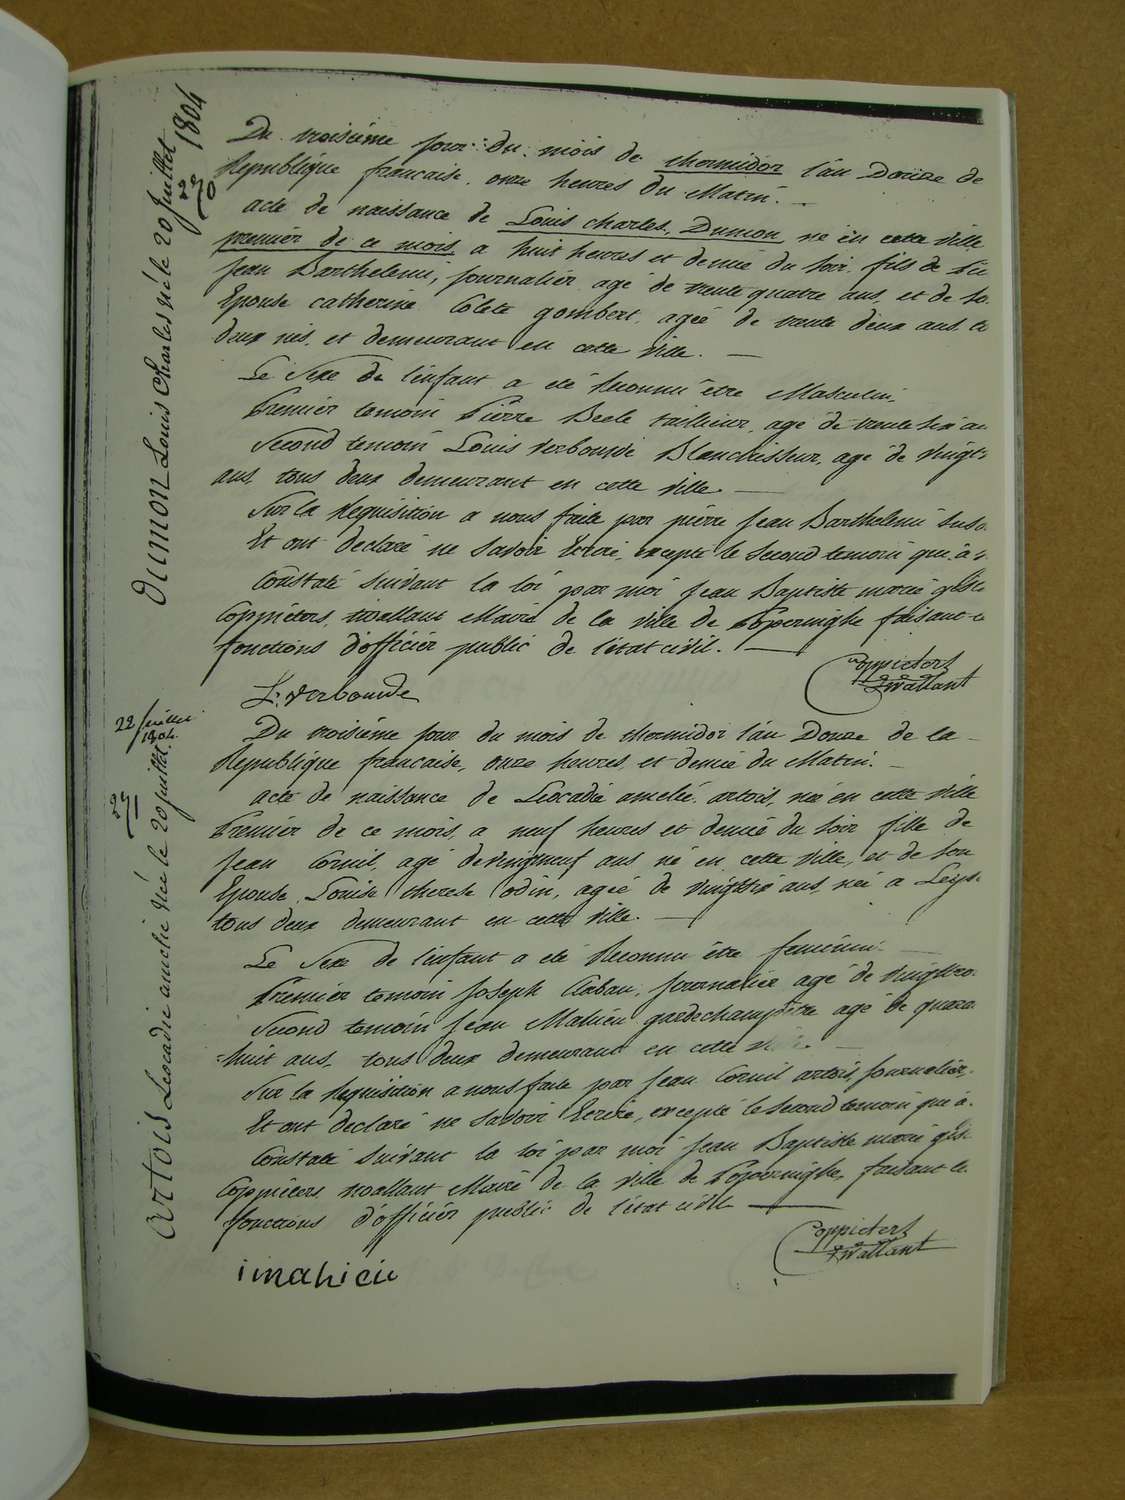 Dumon Louis Charles né le 20 Juillet 1804
270
Du troisième jour du mois de thermidor l'an Douze de
Republique francaise, onze heures du Matin.
acte de naissance de Louis charles, Dumon né en cette ville
premier de ce mois, a huit heures et demie du soir, fils de
Jean Barthelemi, journalier agé de trente quatre ans, et de so
Epouse catherine Colete gombert, agée de trente deux ans,
deux nés, et demeurant en cette ville.
Le Sexe de l'enfant a été Reconnu être Masculin.
Premier temoin Pierre Beele tailleur, agé de trente six an
Second temoin Louis verbourde Blanchisseur, agé de vingt
ans, tous deux demeurant en cette ville.
Sur la Requisition a nous faite par pierre Jean Barthelemi sus
Et ont declaré ne savoir Ecrire, excepté le second temoin qui a
Constaté suivant la loi par moi Jean Baptiste marie
Coppieters, twallant Maire de la ville de Poperinghe faisant
fonctions d'officier public de l'état civil.
Coppieters
twallant
L: verbourde
22 juillet
1804
271
Artois Leocadie amelie née le 20 juillet
Du troisième jour du mois de thermidor l'an Douze de la
Republique francaise, onze heures, et demie du Matin.
acte de naissance de Leocadie amelié, artois, née en cette ville
Premier de ce mois, a neuf heures et demie du soir fille de
Jean Cornil, agé de vingtneuf ans né en cette ville, et de son
Epouse Louise therese odin, agée de vingtsix ans, née a Leys
tous deux demeurant en cette ville.
Le Sexe de l'enfant a été Reconnu être feminin.
Premier temoin Joseph Cabau, journalier agé de vingttro
Second temoin Jean Mahieu gardechampêtre agé de quara
huit ans, tous deux demeurant en cette
Sur la Requisition a nous faite par Jean Cornil artois, journalier,
Et ont declaré ne savoir Ecrire, excepté le second temoin que a
Constaté suivant la loi par moi Jean Baptiste marie
Coppieters twallant Maire de la ville de Poperinghe, faisant le
fonctions d'officier public de l'état civil
Coppieters
twallant
i mahieu